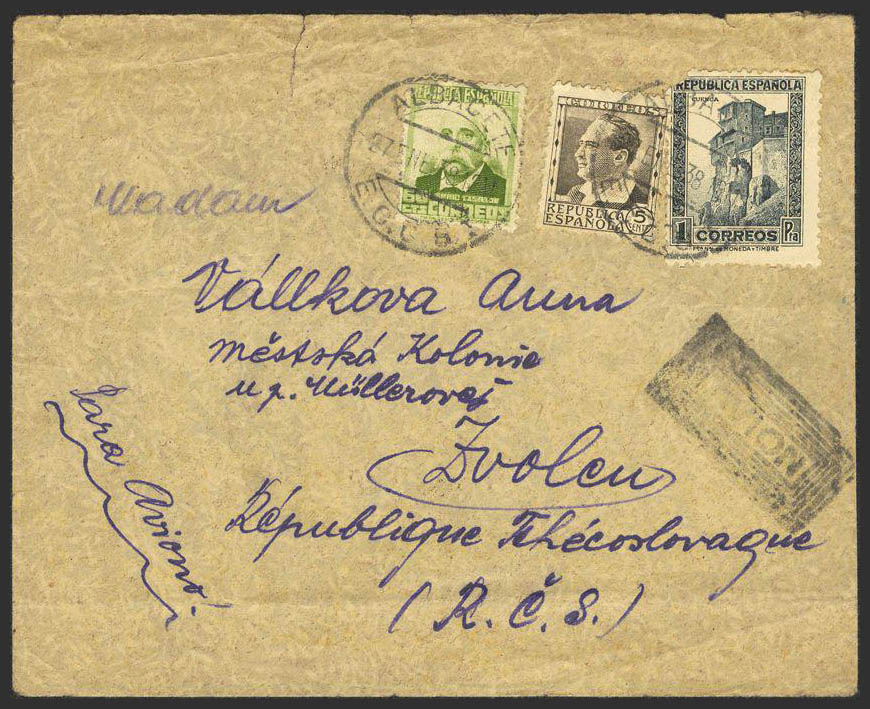 REPUBLICA ESPAÑOLA
ALBACETE
REPUBLICA
ESPAÑOLA
5
CENTS
REPUBLICA ESPAÑOLA
CUENCA
1 CORREOS Pta
Madam
Vállkova Anna
městská Kolonie
u p. Müllerovej
Zvolen
République Tchécoslovaque
(R. Č. S.)
Para Avion